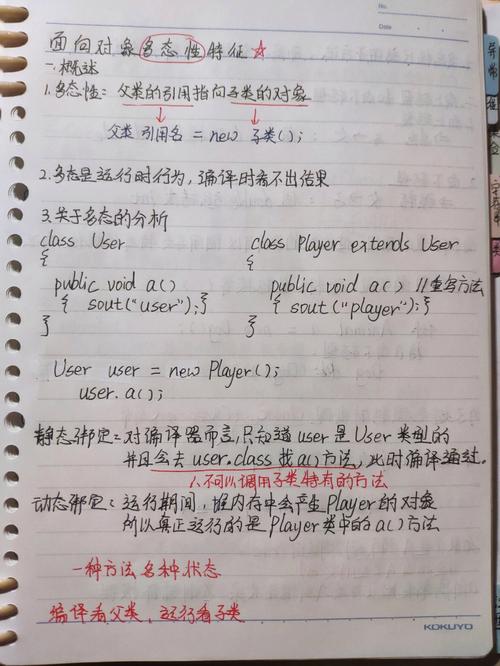 No.
Date
面向对象多态性特征 ☆
一.概述
1.多态性: 父类的引用指向子类的对象
父类 引用名 = new 子类();
2.多态是运行时行为, 编译时看不出结果
3.关于多态的分析
class User
{
public void a()
{ sout("user"); }
}
class Player extends User
{
public void a() //重写方法
{ sout("player"); }
}
User user = new Player();
user.a();
静态绑定: 对编译器而言,只知道user是User类型的
并且会去user.class找a()方法, 此时编译通过.
不可以调用子类特有的方法
动态绑定: 运行期间, 堆内存中会产生Player的对象
所以真正运行的是Player类中的a()方法
一种方法多种状态
编译看父类, 运行看子类
KOKUYO
异常